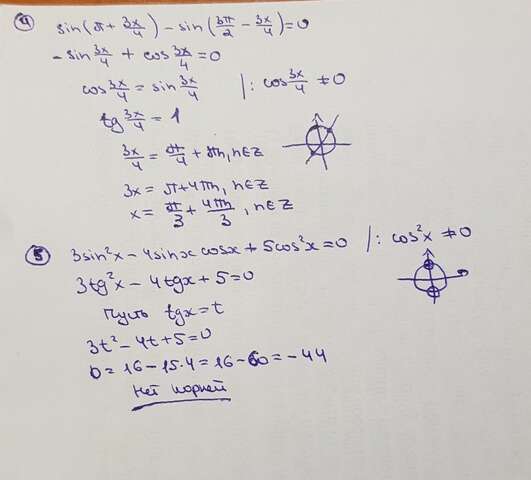 ④ sin(π + 3x/4) - sin(3π/2 - 3x/4) = 0
- sin 3x/4 + cos 3x/4 = 0
cos 3x/4 = sin 3x/4 |: cos 3x/4 ≠ 0
tg 3x/4 = 1
3x/4 = π/4 + πn, n∈Z
3x = π + 4πn, n∈Z
x = π/3 + 4πn/3, n∈Z
⑤ 3sin²x - 4sinx cosx + 5cos²x = 0 |: cos²x ≠ 0
3tg²x - 4tgx + 5 = 0
Пусть tgx = t
3t² - 4t + 5 = 0
D = 16 - 15·4 = 16 - 60 = - 44
Нет корней